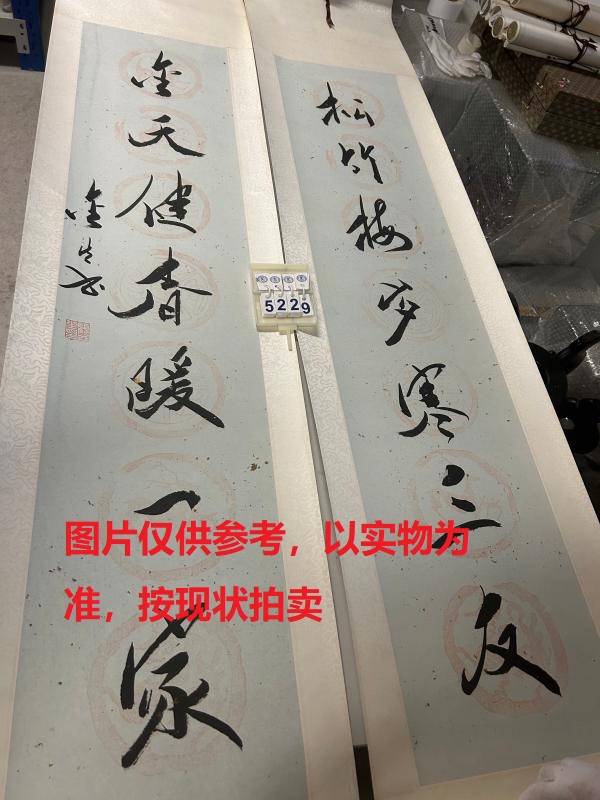 松竹梅岁寒三友
金天健春暖一家
5229
图片仅供参考，以实物为
准，按现状拍卖